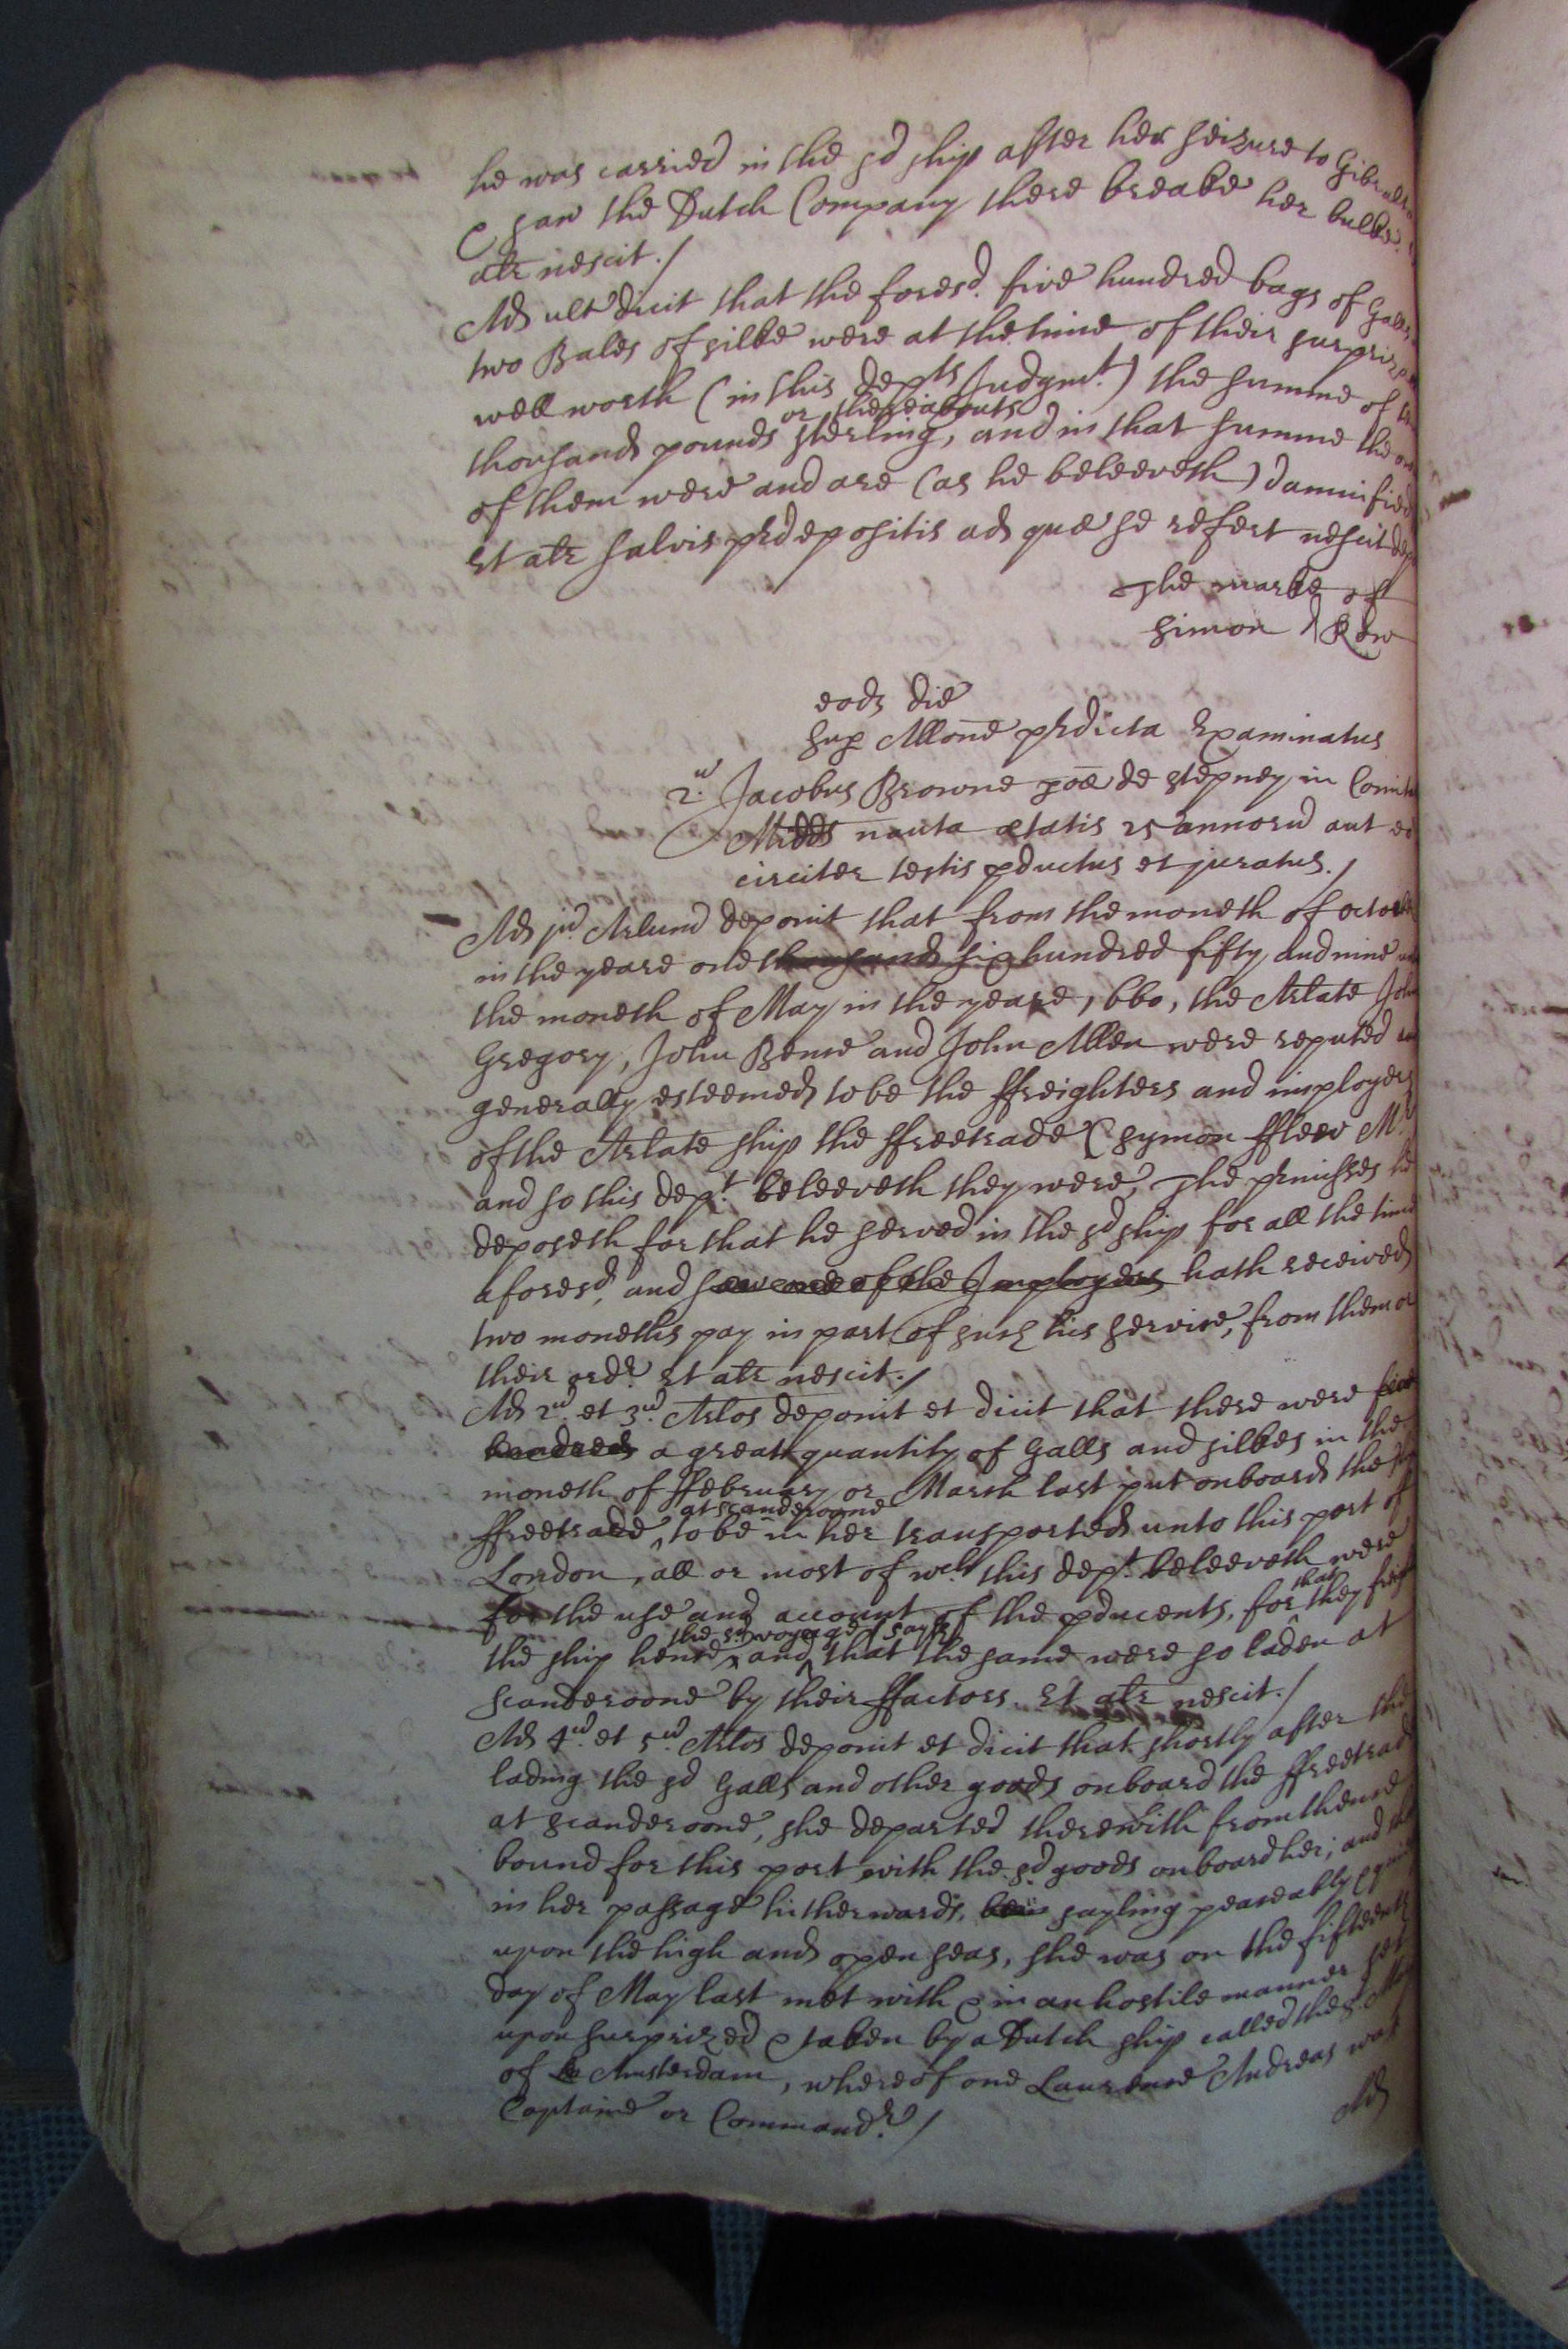 he was carried in the sd ship after her seizure to Gibralta
& saw the Dutch Company there breake her bulke.
alr nescit./
Ad ult dicit that the foresd. five hundred bags of Galls
two Bales of silke were at the time of their surprize
well worth (in this depts Judgmt.) the summe of
or thereabouts
thousand pounds sterling, and in that summe the
of them were and are (as he beleeveth) damnified
Et alr salvis prdepositis ad quæ se refert nescit dep
The marke of
Simon Rew
eod die
Sup Allone prdicta Examinatus
2us. Jacobus Browne poæ de Stepney in Comit
Midds nauta ætatis 25 annoru aut eo
circiter testis pductus et juratus./
Ad ju. Arlum deponit that from the moneth of octob
in the yeare one thousand six hundred fifty and nine
the moneth of May in the yeare, 1660, the Arlate John
Gregory, John Bence and John Allen were reputed
generally esteemed to be the ffreighters and imployers
of the Arlate ship the ffreetrade (Symon ffleew Mr
and so this dept. beleeveth they were, The prmisses he
deposeth for that he served in the sd ship for all the time
aforesd, and saw one of the Imployers hath received
two moneths pay in part of such his service, from them or
their ordr. Et alr nescit./
Ad 2u. et 3u. Arlos deponit et dicit that there were five
hundred a great quantity of Galls and silkes in the
moneth of ffebruary or March last put onboard the
at Scanderoone
ffreetrade, to be in her transported unto this port of
London, all or most of wch this dept. beleeveth were
that
for the use and account of the pducents, for they
the sd voyage (saith)
the ship hence and that the same were so laden at
Scanderoone by their ffactors. Et alr nescit./
Ad 4u. et 5u. Arlos deponit et dicit that shortly after the
lading the sd Galls and other goods onboard the ffreetrad
at Scanderoone, she departed therewith from thence
bound for this port with the sd goods onboard her; and
in her passage hitherwards, sayling peaceably &
upon the high and open seas, she was on the fifteenth
day of May last met with & in an hostile manner set
upon surprized & taken by a Dutch ship called the
of Amsterdam, whereof one Laurence Andreas was
Captaine or Commandr./
Ad